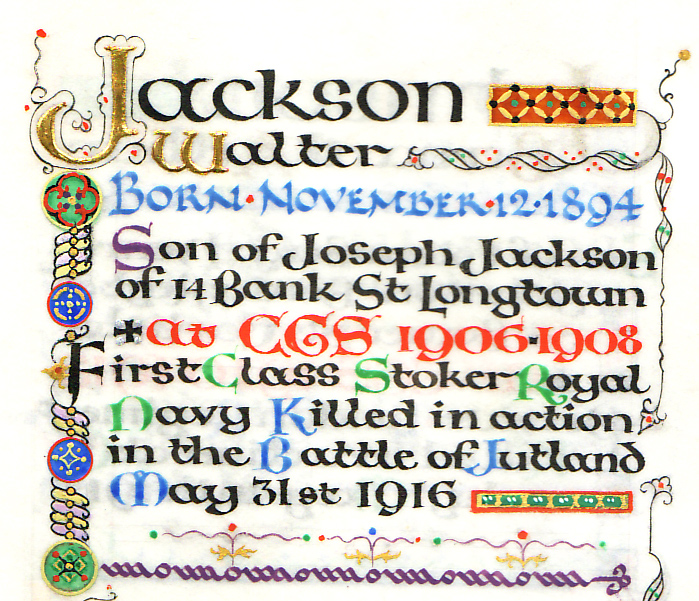 Jackson
Walter
Born·November·12·1894
Son of Joseph Jackson
of 14 Bank St Longtown
+at CGS 1906-1908
First Class Stoker Royal
Navy Killed in action
in the Battle of Jutland
May 31st 1916